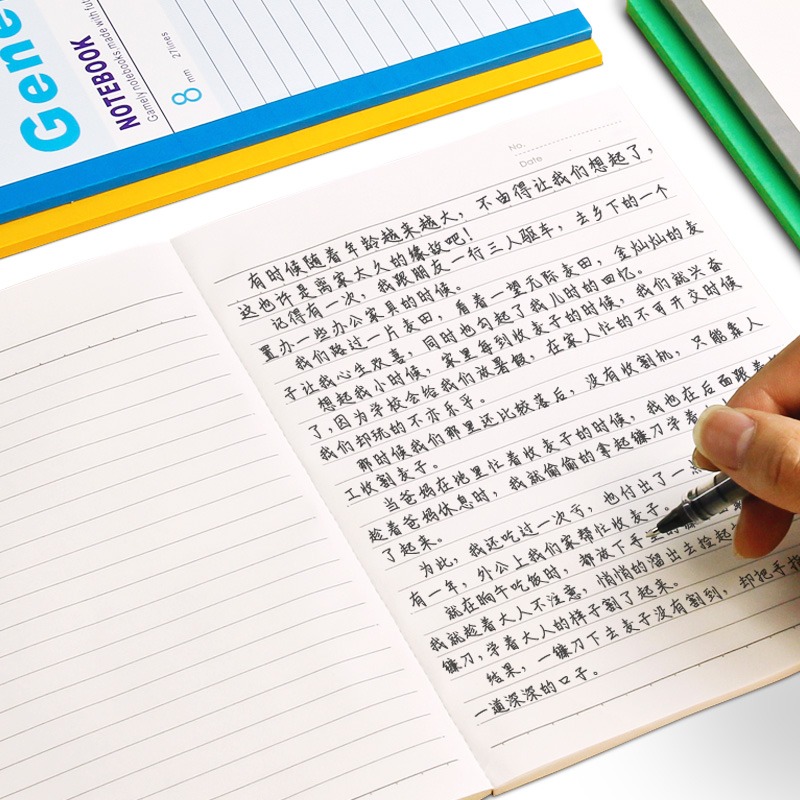 Gene
NOTEBOOK
Gamely notebooks made with fut
8 mm 27lines
No.
Date
有时候随着年龄越来越大，不由得让我们想起了，
这也许是离家太久的缘故吧！
记得有一次，我跟朋友一行三人驱车，去乡下的一个
置办一些办公家具的时候。
我们路过一片麦田，看着一望无际麦田，金灿灿的麦
子让我心生欢喜，同时也勾起了我儿时的回忆。
想起我小时候，家里每到收麦子的时候，我们就兴奋
了，因为学校会给我们放暑假，在家人忙的不可开交时候
我们却玩的不亦乐乎。
那时候我们那里还比较落后，没有收割机，只能靠人
工收割麦子。
当爸妈在地里忙着收麦子的时候，我也在后面跟着
趁着爸妈休息时，我就偷偷的拿起镰刀学着
了起来。
为此，我还吃过一次亏，也付出了一
有一年，外公上我们家帮忙收麦子。
就在晌午吃饭时，都放下手
我就趁着大人不注意，悄悄的溜出去捡起
镰刀，学着大人的样子割了起来。
结果，一镰刀下去麦子没有割到，却把手指
一道深深的口子。